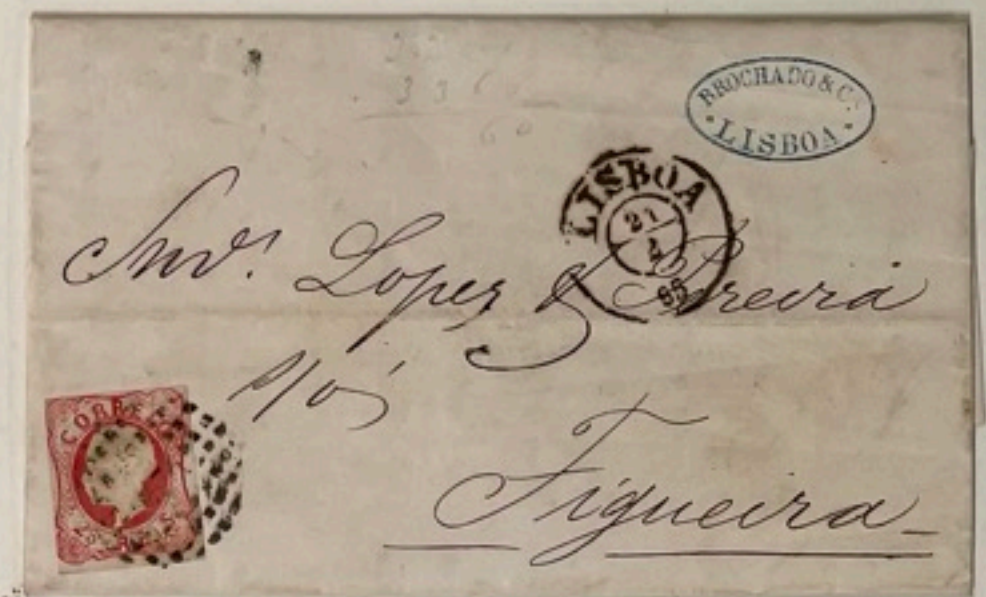 BROCHADO & C.
LISBOA
LISBOA
21
65
Snrs. Lopes & Pereira
Figueira
CORREIO